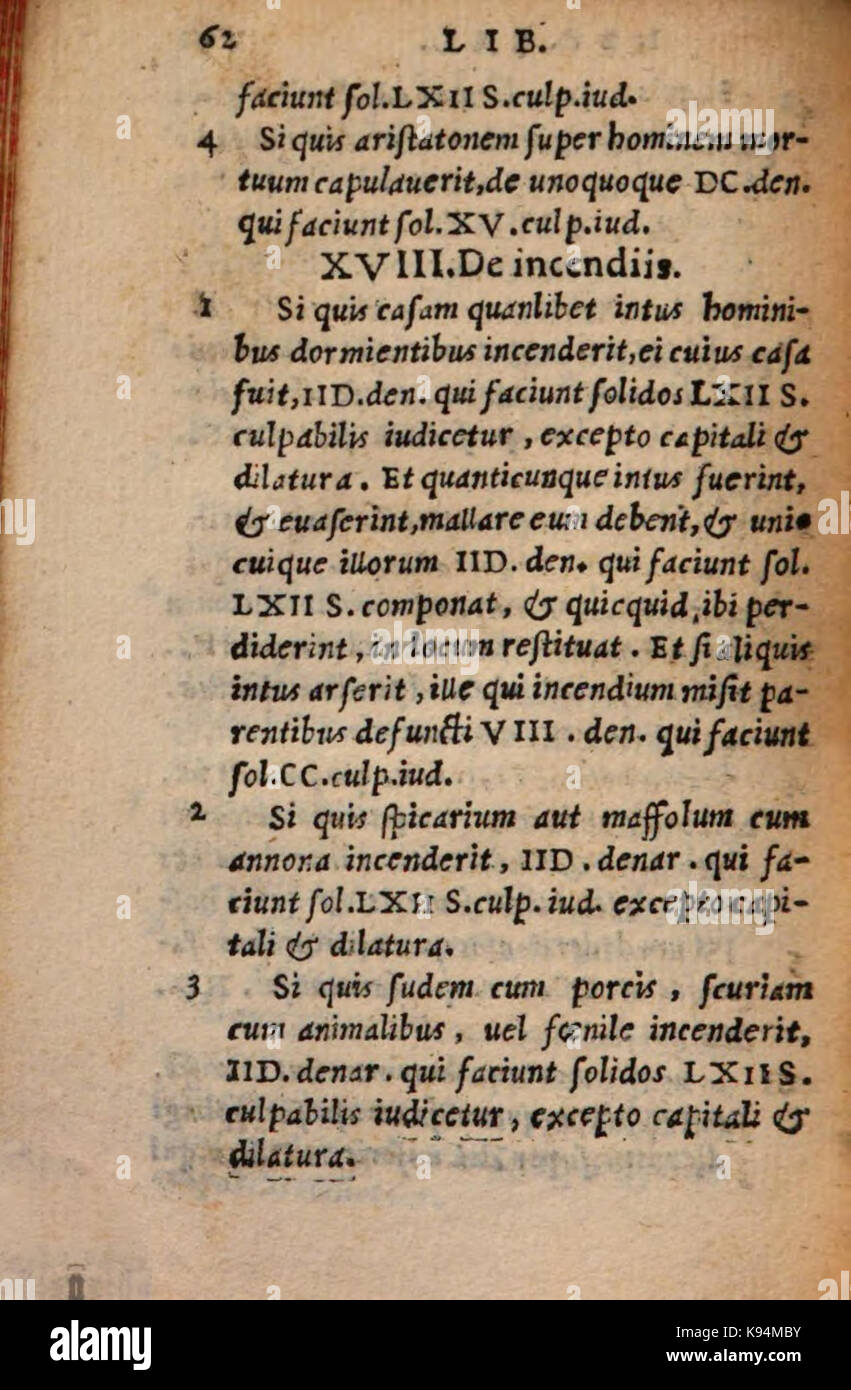 62 LIB.
faciunt ſol.LXII S.culp.iud.
4 Si quis ariſtatonem ſuper hominem mor-
tuum capulauerit,de unoquoque DC.den.
qui faciunt ſol.XV.culp.iud.
XVIII.De incendiis.
1 Si quis caſam quanlibet intus homini-
bus dormientibus incenderit,ei cuius caſa
fuit,IID.den. qui faciunt ſolidos LXII S.
culpabilis iudicetur , excepto capitali &
dilatura. Et quanticunque intus fuerint,
& euaſerint,mallare eum debent,& uni-
cuique illorum IID. den. qui faciunt ſol.
LXII S. componat, & quicquid ibi per-
diderint, in locum reſtituat. Et ſi aliquis
intus arſerit, ille qui incendium miſit pa-
rentibus defuncti VIII . den. qui faciunt
ſol.CC.culp.iud.
2 Si quis ſpicarium aut maffolum cum
annona incenderit, IID . denar . qui fa-
ciunt ſol.LXII S.culp. iud. excepto capi-
tali & dilatura.
3 Si quis ſudem cum porcis , ſcuriam
cum animalibus, uel fœnile incenderit,
IID. denar. qui faciunt ſolidos LXII S.
culpabilis iudicetur, excepto capitali &
dilatura.
a alamy
Image ID: K94MBY
www.alamy.com